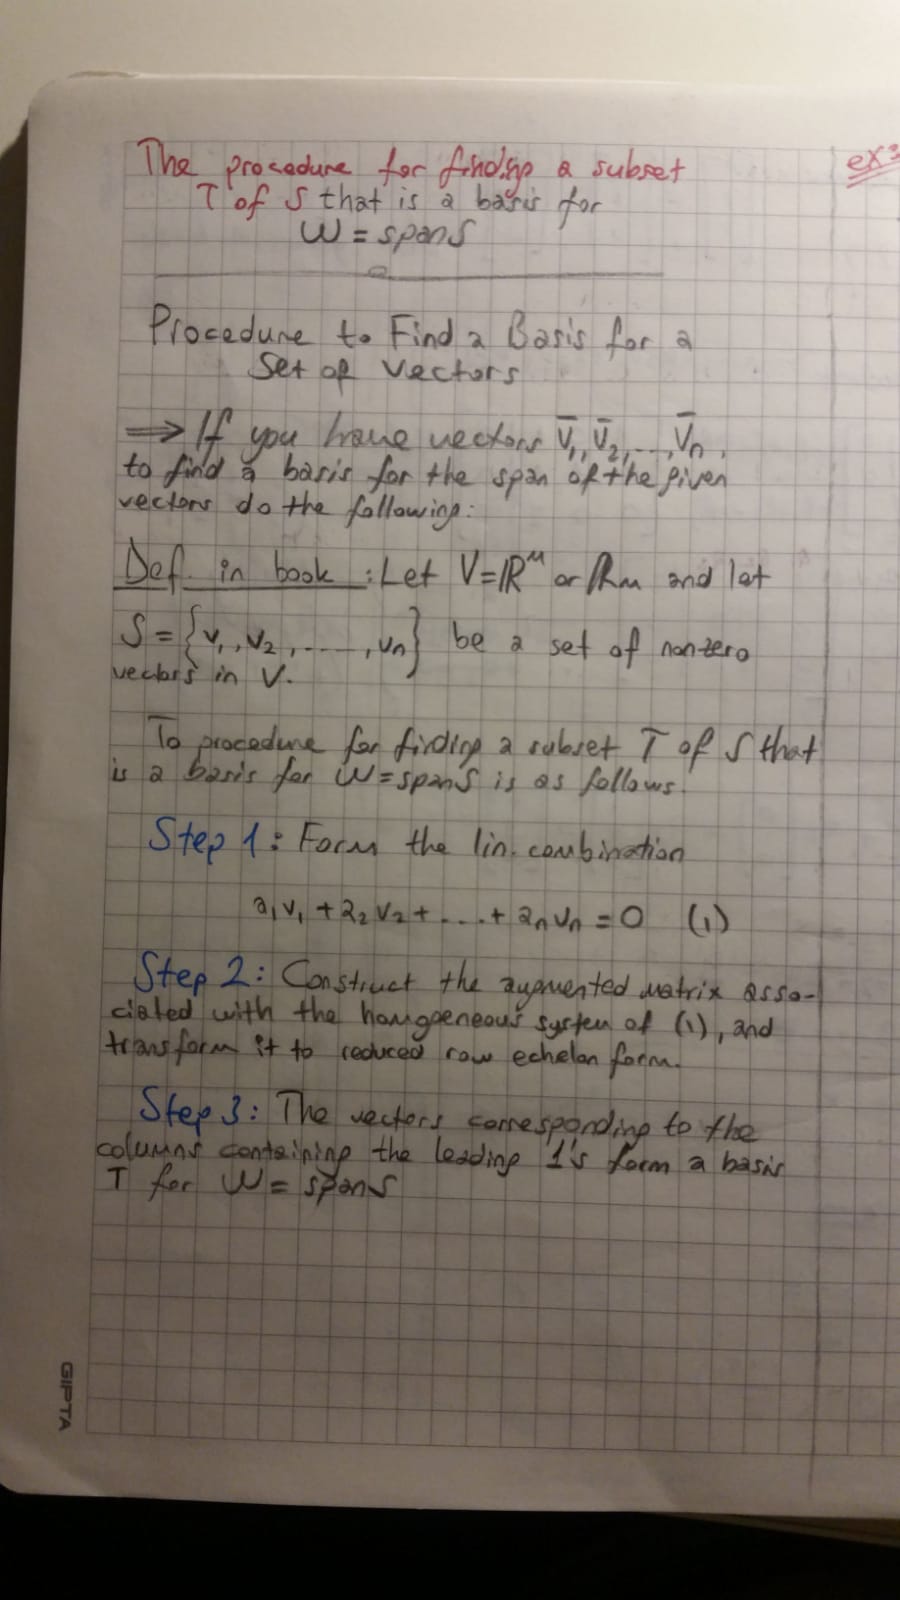 The procedure for finding a subset
T of S that is a basis for
W = spanS
ex:
Procedure to Find a Basis for a
Set of Vectors
⟹ If you have vectors v̄₁, v̄₂, ..., v̄ₙ,
to find a basis for the span of the given
vectors do the following:
Def. in book : Let V=ℝᵐ or ℝₘ and let
S = {v₁, v₂, ......, vₙ} be a set of nonzero
vectors in V.
To procedure for finding a subset T of S that
is a basis for W = spanS is as follows.
Step 1 : Form the lin. combination
a₁v₁ + a₂v₂ + ... + aₙvₙ = 0 (1)
Step 2 : Construct the augmented matrix asso-
ciated with the homgoeneous system of (1), and
transform it to reduced row echelon form.
Step 3 : The vectors corresponding to the
columns containing the leading 1's form a basis
T for W = spanS
GIPTA